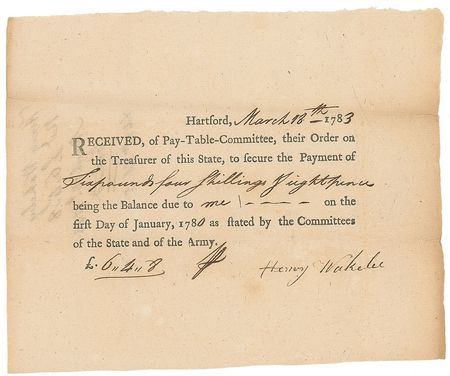 Hartford, March 18th 1783
RECEIVED, of Pay-Table-Committee, their Order on
the Treaſurer of this State, to ſecure the Payment of
Sixpounds four Shillings & eightpence
being the Balance due to me \ – – – – on the
firſt Day of January, 1780 as ſtated by the Committees
of the State and of the Army.
£. 6 " 4 " 8
Henry Wakelee